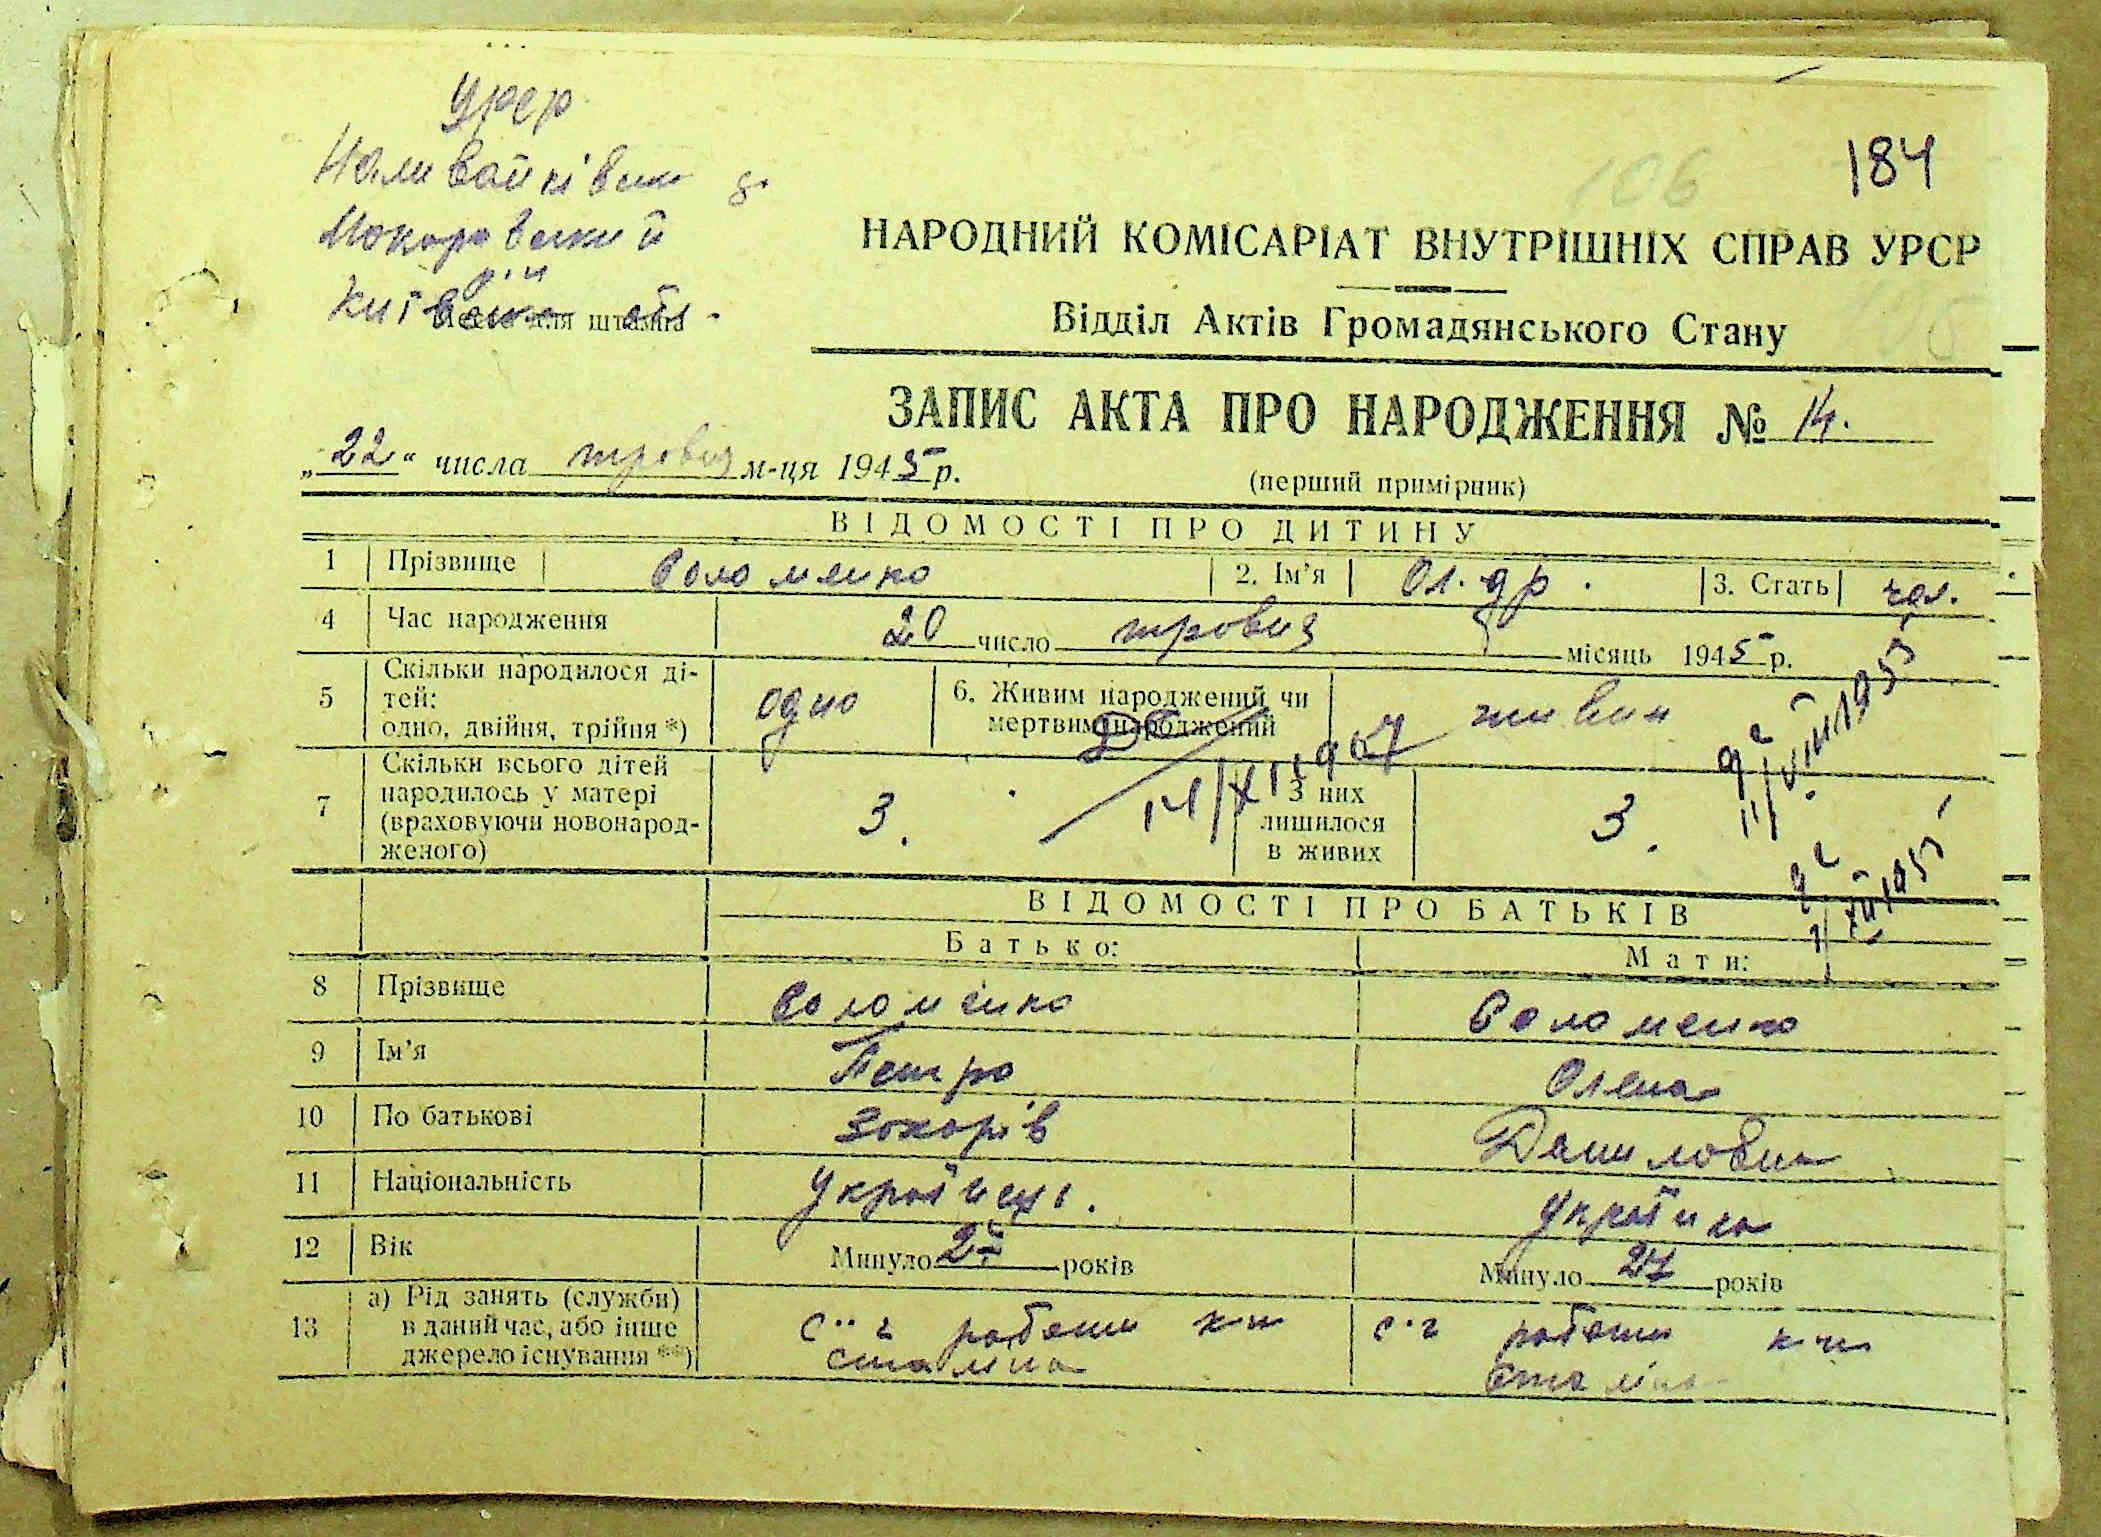 УРСР
Макарівський
р-н
Київська обл.
Місце для штампа
106
184
НАРОДНИЙ КОМІСАРІАТ ВНУТРІШНІХ СПРАВ УРСР
Відділ Актів Громадянського Стану
ЗАПИС АКТА ПРО НАРОДЖЕННЯ № 14.
„22“ числа травня м-ця 1945 р.
(перший примірник)
ВІДОМОСТІ ПРО ДИТИНУ
1 Прізвище Соломенко 2. Ім’я 3. Стать чол.
4 Час народження 20 число травня місяць 1945 р.
5 Скільки народилося ді-
тей:
одно, двійня, трійня *) одно 6. Живим народжений чи
мертвим народжений живим
7 Скільки всього дітей
народилось у матері
(враховуючи новонарод-
женого) 3. З них
лишилося
в живих 3.
ВІДОМОСТІ ПРО БАТЬКІВ
Батько: Мати:
8 Прізвище Соломенко Соломенко
9 Ім’я Петро Олена
10 По батькові Захарів Даниловна
11 Національність Українець. Українка
12 Вік Минуло років Минуло років
13 а) Рід занять (служби)
в даний час, або інше
джерело існування **)
Сталіна Сталіна